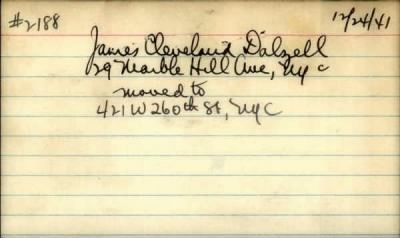 #2188 12/24/41
James Cleveland Dalzell
29 Marble Hill Ave, NYC
moved to
421 W 260th St, NYC